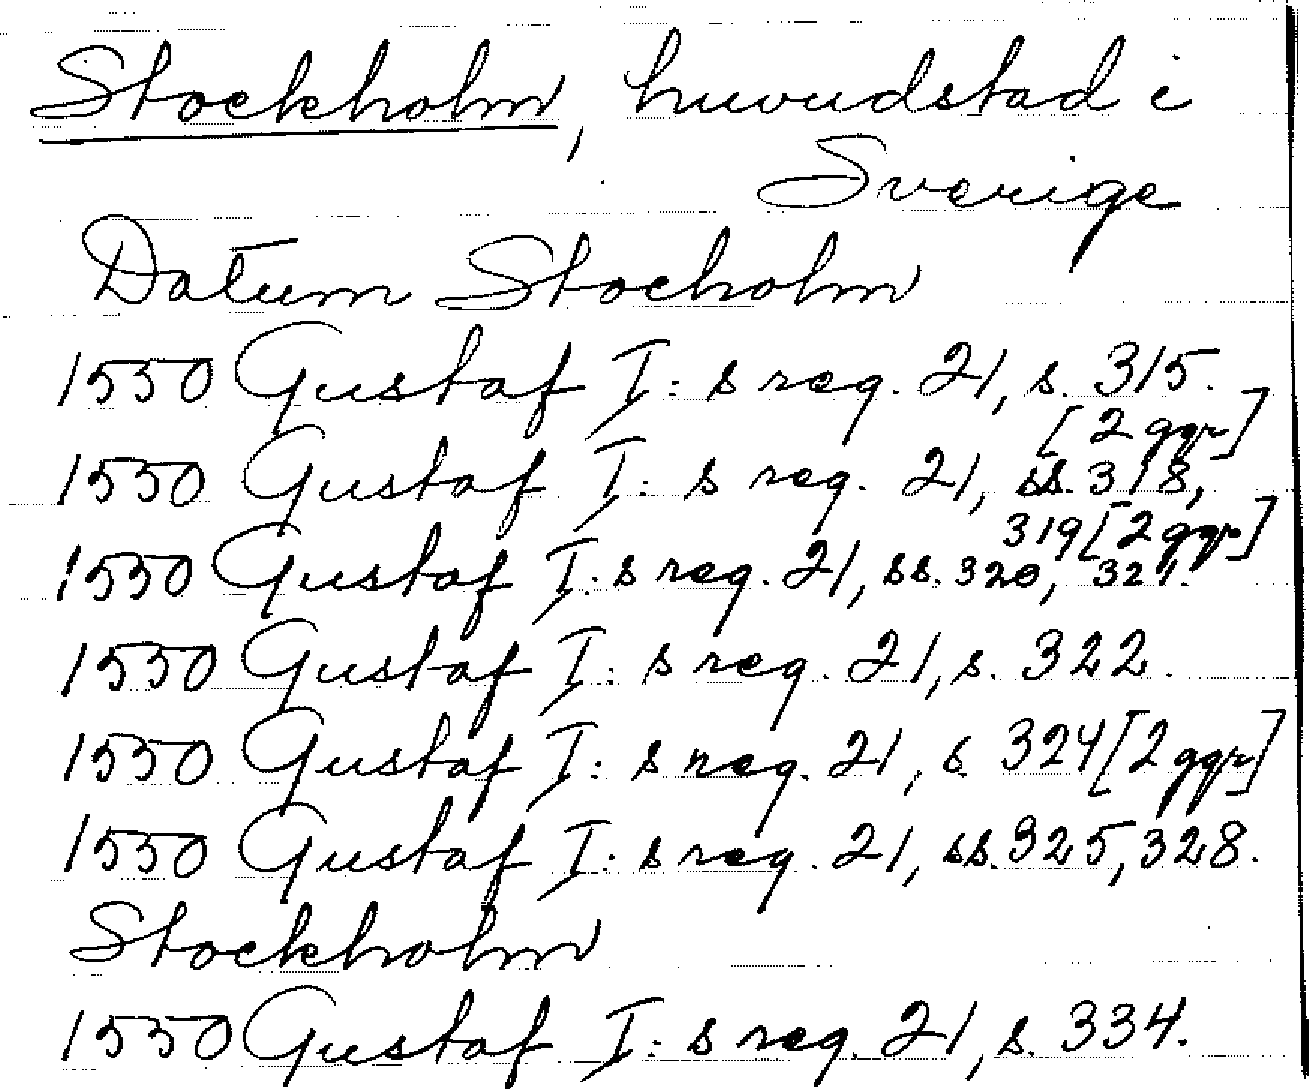 Stockholm, huvudstad i
Sverige
Datum Stocholm
1550 Gustaf I: s reg. 21, s. 315.
[2 ggr]
1550 Gustaf I: s reg. 21, ss. 318,
319 [2 ggr]
1550 Gustaf I: s reg. 21, ss. 320, 321.
1550 Gustaf I: s reg. 21, s. 322.
1550 Gustaf I: s reg. 21, s. 324 [2 ggr]
1550 Gustaf I: s reg. 21, ss. 325, 328.
Stockholm
1550 Gustaf I: s reg. 21, s. 334.